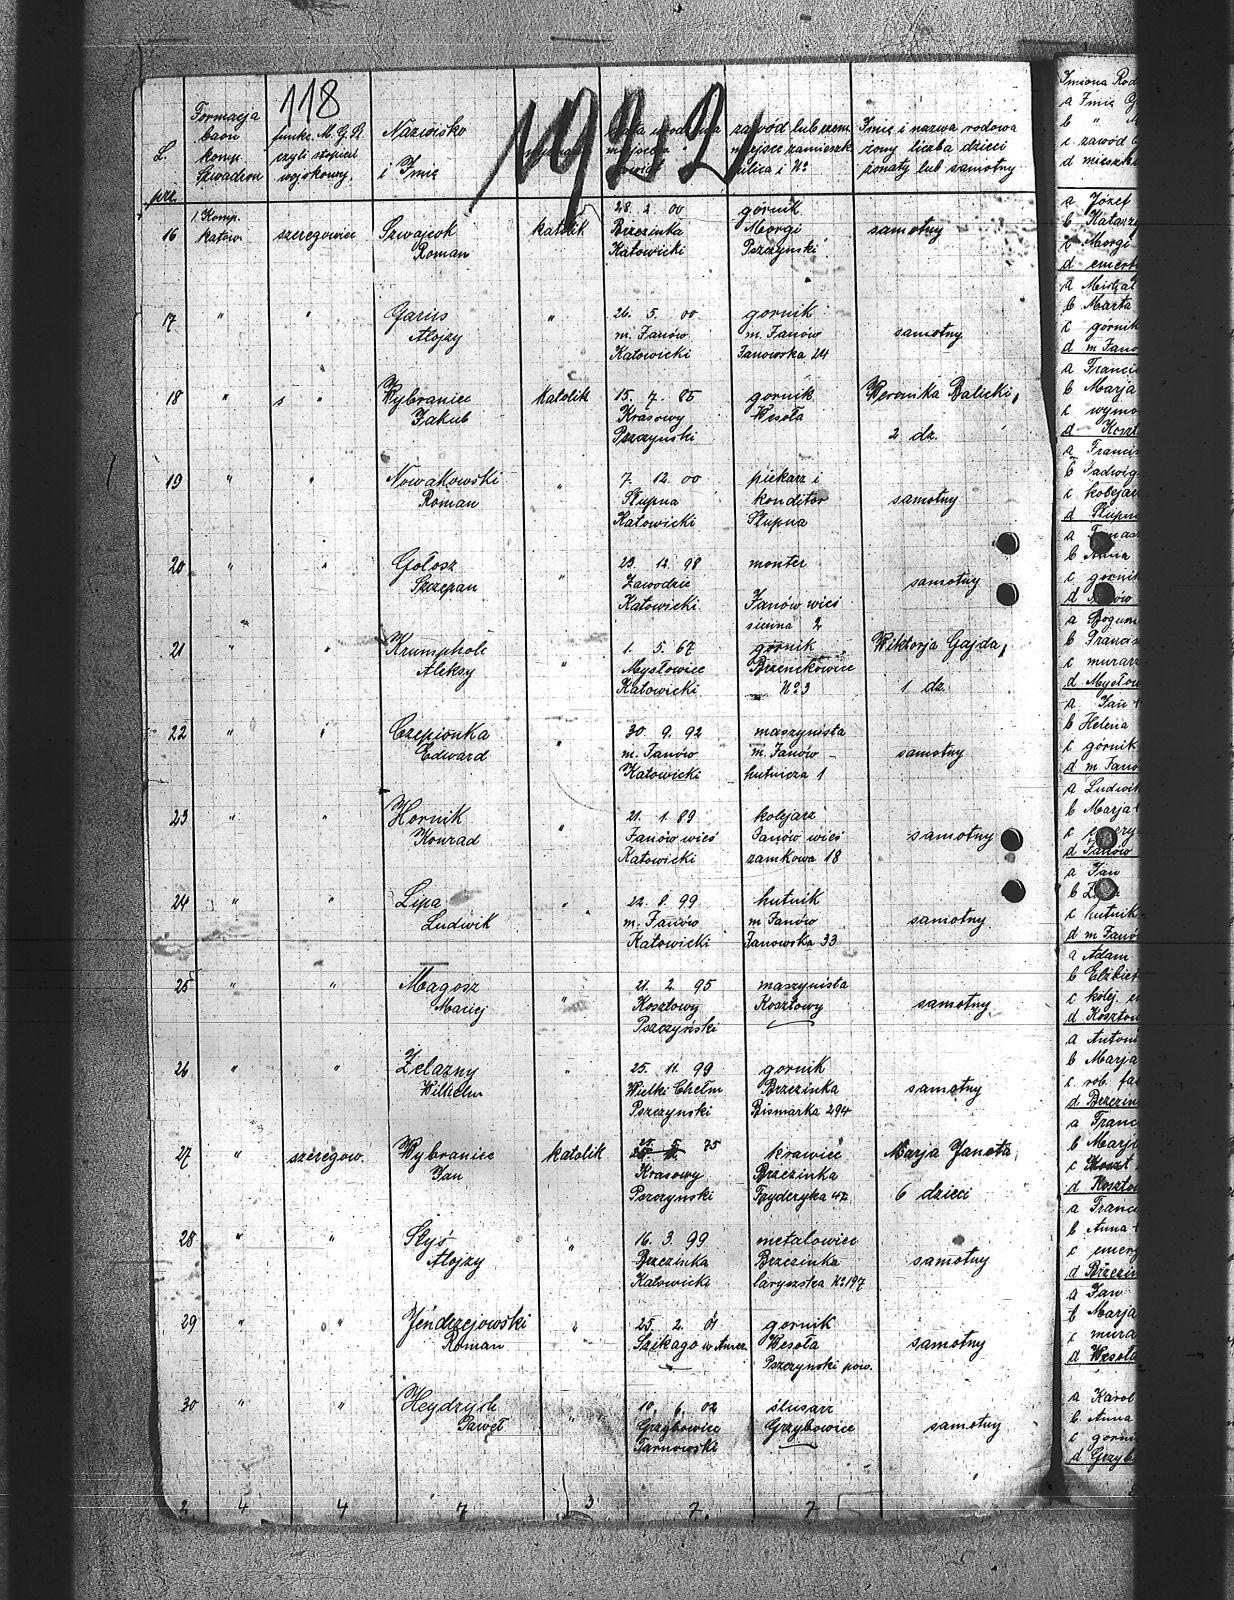 118
1922
L. prz.
Formacja baon komp. Szwadron
funkc. M. G. R. czyli stopień wojskowy.
Nazwisko i Imię
zawód lub rzem. miejsce zamieszk. ulica i No
Imię i nazwa rodowa żony liczba dzieci ponaty lub samotny
1 Komp. 28. 2. 00 górnik
16 katow. szeregowiec Szwajcok katolik Brzezinka Morgi samotny
Roman Katowicki Pszczyński
17 " " Garus " 26. 5. 00 gornik
Alojzy m. Janów m. Janów samotny
Katowicki Janowska 24
18 " " Wybraniec Katolik 15. 7. 85 gornik Weronika Dalicki,
Jakub Krasowy Wesoła
Pszczynski 2 dz.
19 " " Nowakowski " 7. 12. 00 piekarz i
Roman Słupna konditor samotny
Katowicki Słupna
20 " " Gołosz " 23. 12. 98 monter
Szczepan Zawodzie samotny
Katowicki Janów wieś
sienna 2
21 " " Krumpholc " 1. 5. 67 górnik Wiktorja Gajda,
Aleksy Mysłowice Brzenckowice
Katowicki No 3 1 dz.
22 " " Czepionka " 30. 9. 92 maszynista
Edward m. Janów m. Janów samotny
Katowicki hutnicza 1
23 " " Hornik " 21. 1 89 kolejarz
Konrad Janów wieś Janów wieś samotny
Katowicki zamkowa 18
24 " " Lipa " 22. 8. 99 hutnik
Ludwik m. Janów m. Janów samotny
Katowicki Janowska 33
25 " " Magosz " 21. 2. 95 maszynista
Maciej Kosztowy Kosztowy samotny
Pszczyński
26 " " Żelazny " 25. 11. 99 gornik
Wilhelm Wielki Chełm Brzezinka samotny
Pszczynski Bismarka 294
27 " szeregow. Wybraniec katolik 75 krawiec Marja Janota,
Jan Krasowy Brzezinka
Pszczynski Fryderyka 47. 6 dzieci
28 " " Styś " 16. 3. 99 metalowiec
Alojzy Brzezinka Brzezinka samotny
Katowicki laryszska No 197
29 " " Jendrzejowski " 25. 2. 01 gornik
Roman Szikago w Amer. Wesoła samotny
Pszczynski pow.
30 " " Heydrych " 10. 6. 02 ślusarz
Paweł Grzybowice Grzybowice samotny
Tarnowski
2 4 4 7 3 7. 7
Imiona Rod
a Imię
b "
c zawód
d mieszk
a Józef
b Katarz
c Morgi
d emeryt
a Michał
b Marta
c górnik
d m Jano
a Franci
b Marja
c wymo
d Koszt
a Francis
b Jadwig
c kolejar
d Słupna
a Tomas
b Anna
c gornik
d Janów
a Bogum
b Francis
c murarz
d Mysłow
a Jan
b Helena
c górnik
d m. Jano
a Ludwik
b Marja
d Janów
a Jan
c hutnik
d m Janów
a Adam
b Elżbiet
c kolej. e
d Kosztow
a Antoni
b Marja
c rob. fa
d Brzezin
a Franc
b Marja
c Koszt
d Kosztow
a Franci
b Anna
c emery
d Brzezin
a Jan
b Marja
c mura
d Wesoła
a Karol
b Anna
c gorni
d Grzyb